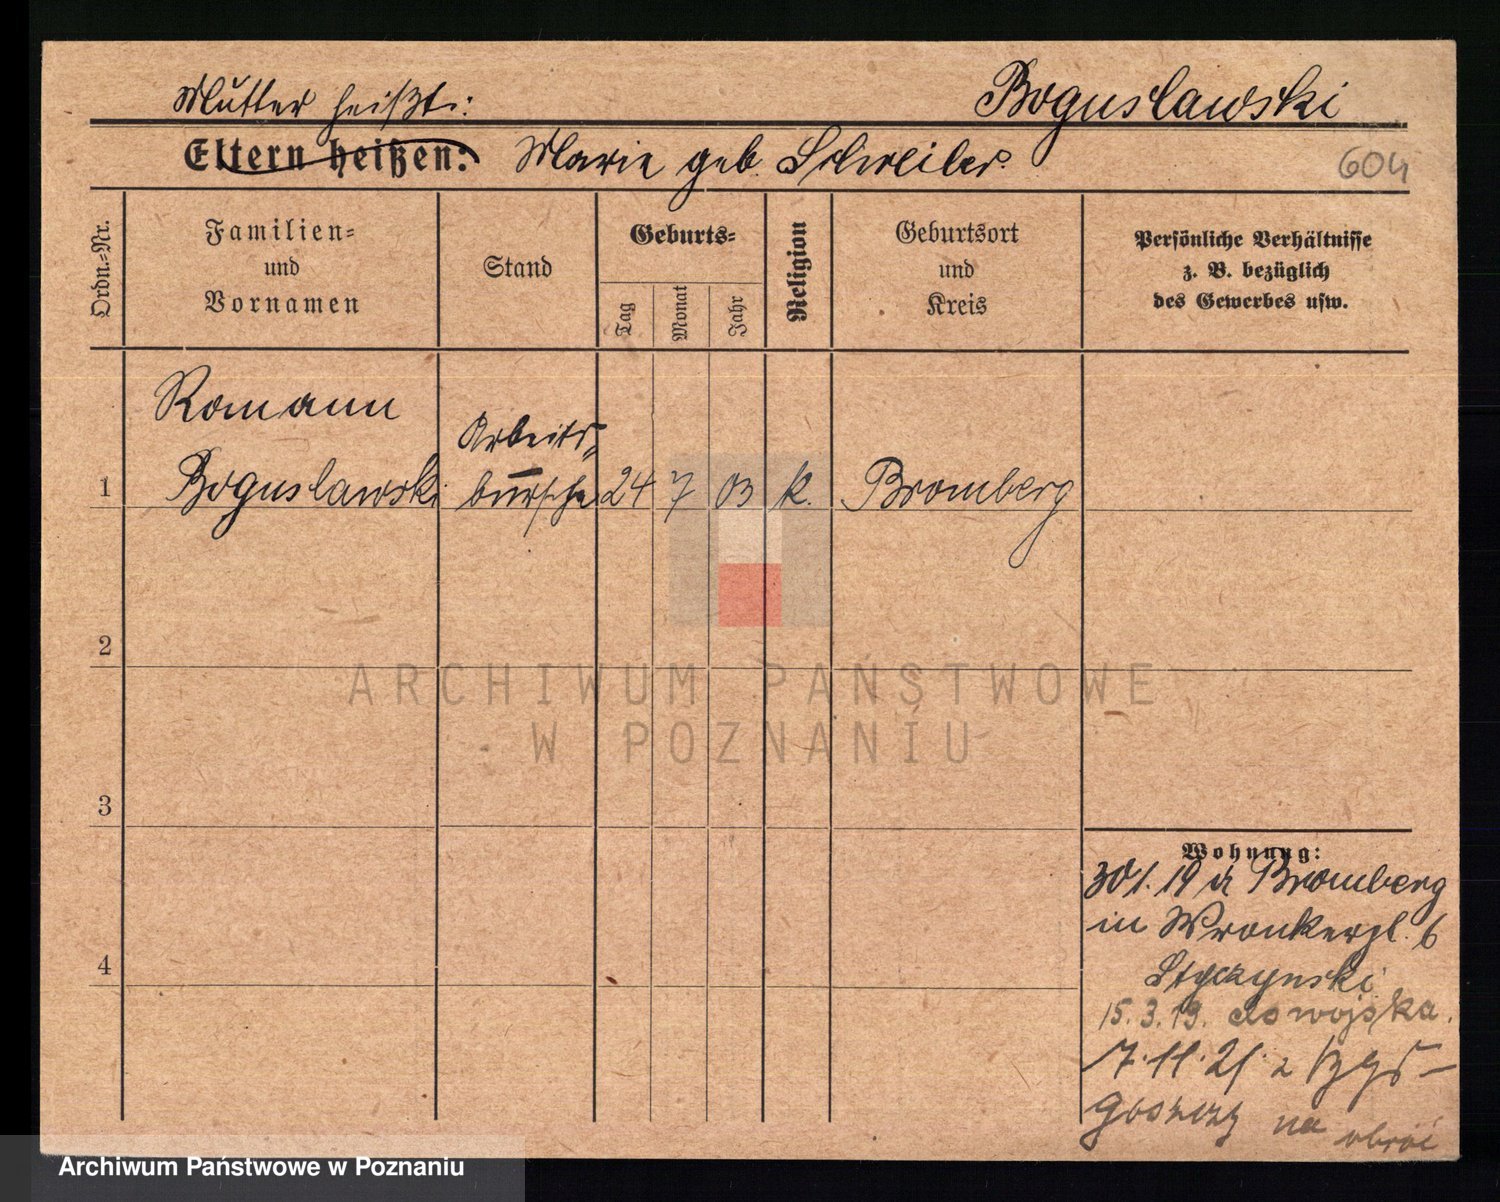 Mutter heißt:
Boguslawski
Eltern heißen:
Marie geb.
604
Ordn.-Nr.
Familien-
und
Vornamen
Stand
Geburts-
Tag
Monat
Jahr
Religion
Geburtsort
und
Kreis
Persönliche Verhältnisse
z. B. bezüglich
des Gewerbes usw.
Romann
Boguslawski
Arbeits-
bursche
1
24
7
03
k.
Bromberg
2
ARCHIWUM PAŃSTWOWE
W POZNANIU
3
4
Wohnung:
30/1. 19 a Bromberg
in Wronkerpl. 6
Styczynski
15. 3. 19. do wojska.
7. 11. 21. z Byd-
goszczy na
Archiwum Państwowe w Poznaniu